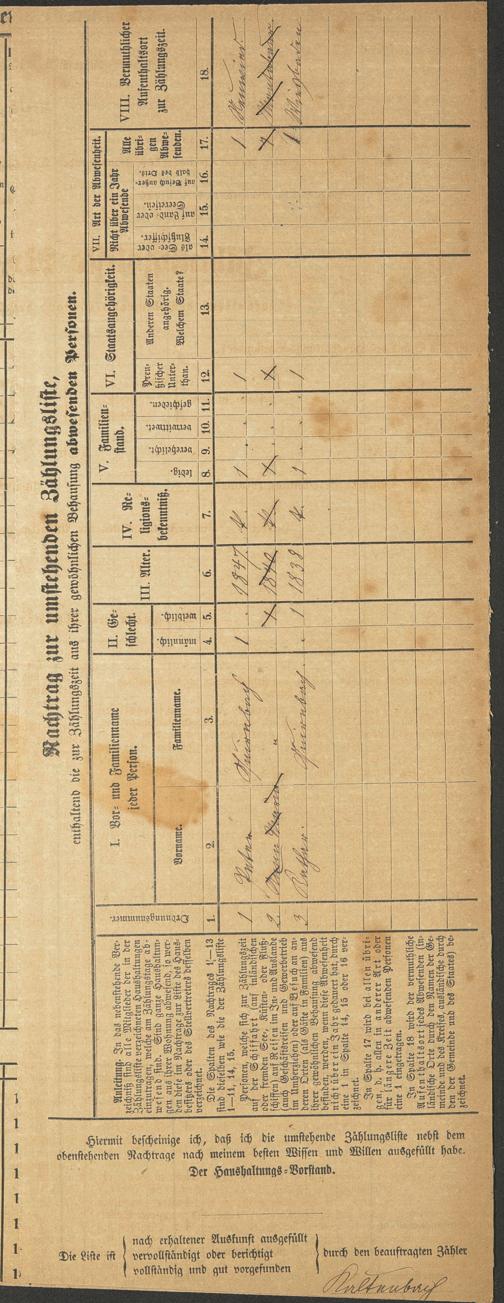 Nachtrag zur umstehenden Zählungsliste,
enthaltend die zur Zählungszeit aus ihrer gewöhnlichen Behausung abwesenden Personen.
Anleitung. In das nebenstehende Ver-
zeichniß sind alle Mitglieder der in der
Zählungsliste verzeichneten Haushaltungen
einzutragen, welche am Zählungstage ab-
wesend sind. Sind ganze Haushaltun-
gen aus ihrer Wohnung abwesend, so wer-
den diese im Nachtrage zur Liste des Haus-
besitzers oder des Stellvertreters desselben
verzeichnet.
Die Spalten des Nachtrages 1–13
sind dieselben wie die der Zählungsliste
1–11, 14, 15.
Personen, welche sich zur Zählungszeit
auf der Schiffahrt auf inländischen
oder fremden (See-, Küsten- oder Fluß-
schiffen) auf Reisen im In- und Auslande
(auch Geschäftsreisen und Gewerbebetrieb
im Umherziehen) oder auf Besuch an an-
deren Orten (als Gäste in Familien) aus
ihrer gewöhnlichen Behausung abwesend
befinden, werden, wenn diese Abwesenheit
nicht über ein Jahr gedauert hat, durch
eine 1 in Spalte 14, 15 oder 16 ver-
zeichnet.
In Spalte 17 wird bei allen übri-
gen, d. h. allen in anderer Art oder
für längere Zeit abwesenden Personen
eine 1 eingetragen.
In Spalte 18 wird der vermuthliche
Aufenthaltsort des Abwesenden (in-
ländische Orte durch den Namen der Ge-
meinde und des Kreises, ausländische durch
den der Gemeinde und des Staates) be-
zeichnet.
Ordnungsnummer.
I. Vor- und Familienname
jeder Person.
Vorname.
Familienname.
II. Ge-
schlecht.
männlich.
weiblich.
III. Alter.
IV. Re-
ligions-
bekenntniß.
V. Familien-
stand.
ledig.
verehelicht.
verwittwet.
geschieden.
VI. Staatsangehörigkeit.
Preu-
ßischer
Unter-
than.
Anderen Staaten
angehörig.
Welchem Staate?
VII. Art der Abwesenheit.
Nicht über ein Jahr
Abwesende
als See- oder
Flußschiffer.
auf Land- oder
Seereisen.
auf Besuch außer-
halb des Orts.
Alle
übri-
gen
Abwe-
senden.
VIII. Vermuthlicher
Aufenthaltsort
zur Zählungszeit.
1. 2. 3. 4. 5. 6. 7. 8. 9. 10. 11. 12. 13. 14. 15. 16. 17. 18.
1 Peter 1 1847 k. 1 1 1
2 1840 k.
3 Kathar. 1 1838 k. 1 1 1 Wiesbaden
Hiermit bescheinige ich, daß ich die umstehende Zählungsliste nebst dem
obenstehenden Nachtrage nach meinem besten Wissen und Willen ausgefüllt habe.
Der Haushaltungs-Vorstand.
Die Liste ist
nach erhaltener Auskunft ausgefüllt
vervollständigt oder berichtigt
vollständig und gut vorgefunden
durch den beauftragten Zähler
Kaltenbach